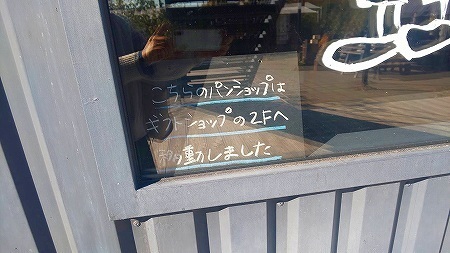 こちらのパンショップは
ギフトショップの2Fへ
移動しました